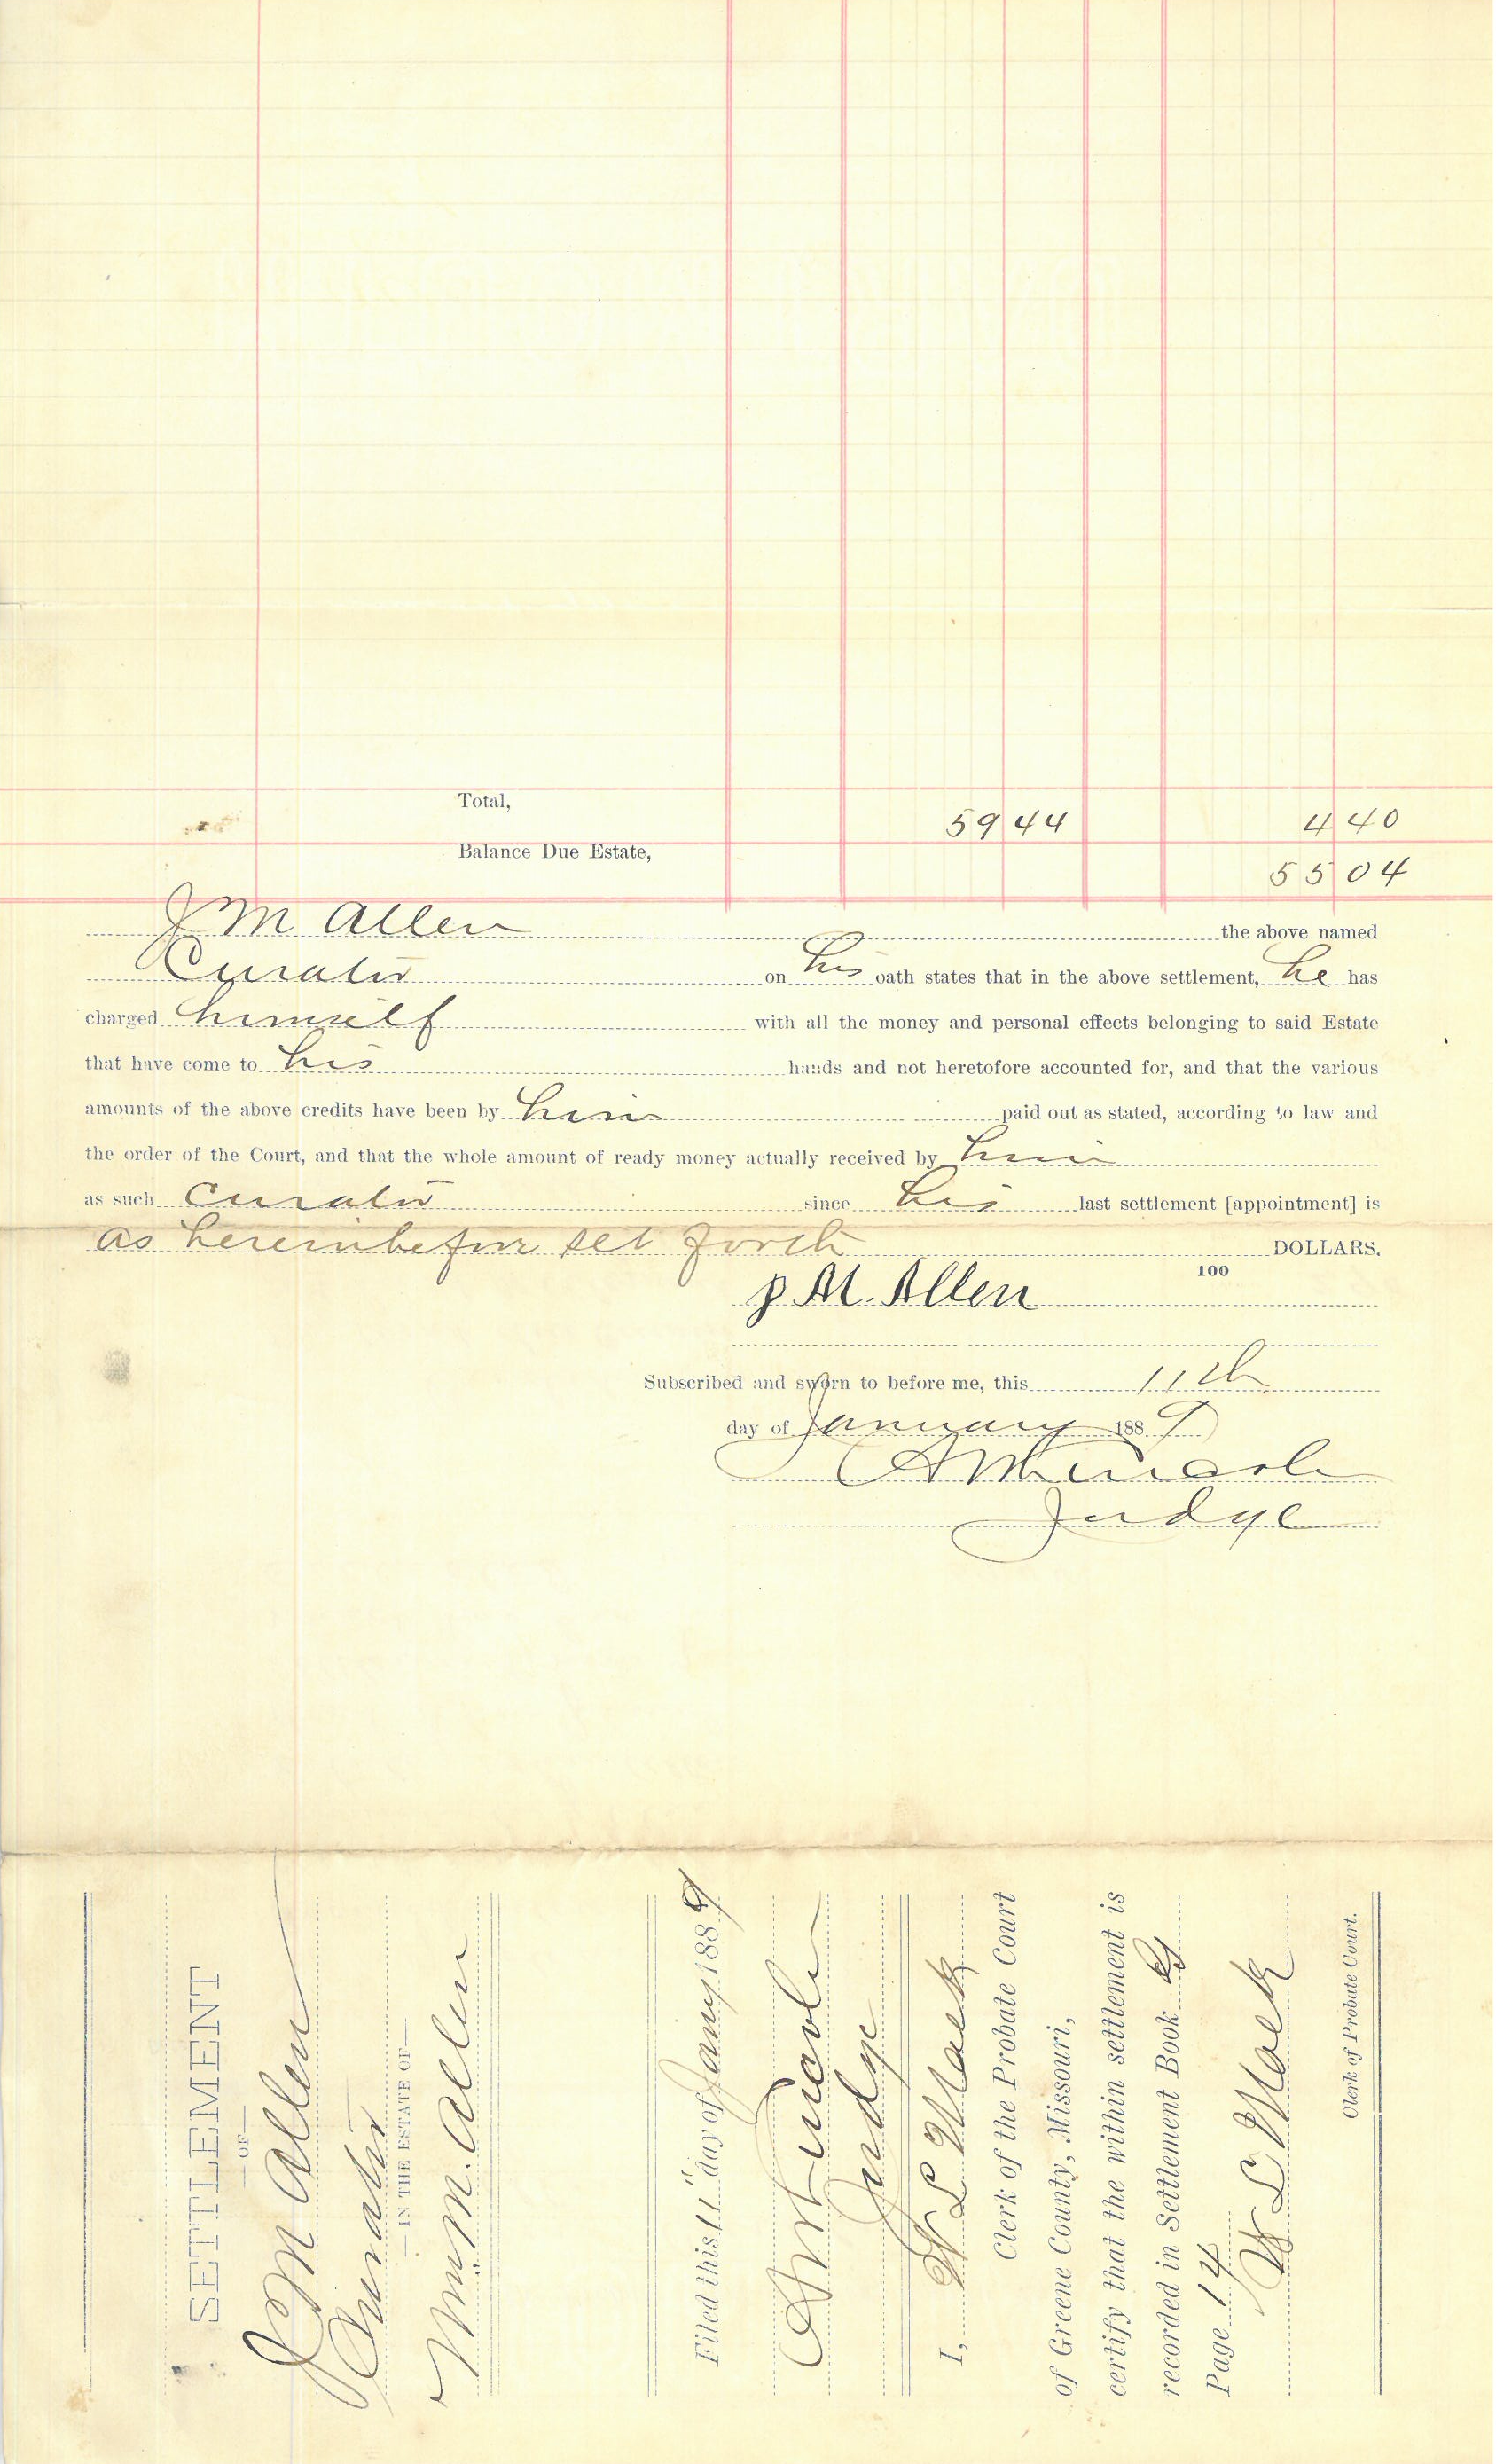 Total, 59 44 4 40
Balance Due Estate, 55 04
J M Allen the above named
Curator on his oath states that in the above settlement, he has
charged himself with all the money and personal effects belonging to said Estate
that have come to his hands and not heretofore accounted for, and that the various
amounts of the above credits have been by him paid out as stated, according to law and
the order of the Court, and that the whole amount of ready money actually received by him
as such Curator since his last settlement [appointment] is
as hereinbefore set forth DOLLARS.
100
J. M. Allen
Subscribed and sworn to before me, this 11th
day of January 1889
Judge
SETTLEMENT
—OF—
J M Allen
Curator
—IN THE ESTATE OF—
Wm M. Allen
Filed this 11" day of Jany 1889
Judge
I, W L Mack
Clerk of the Probate Court
of Greene County, Missouri,
certify that the within settlement is
recorded in Settlement Book
Page 14
W L Mack
Clerk of Probate Court.